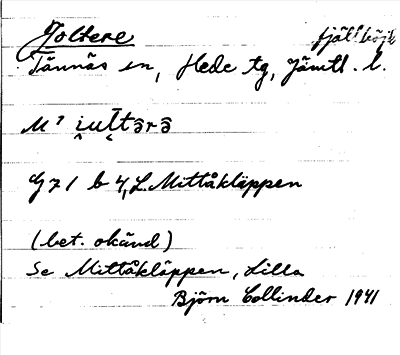 Joltere fjällhöjd
Tännäs sn, Hede tg, Jämtl. l.
M? i̯ultərə
G 71 b 4, L. Mittåkläppen
(bet. okänd)
Se Mittåkläppen, Lilla
Björn Collinder 1941